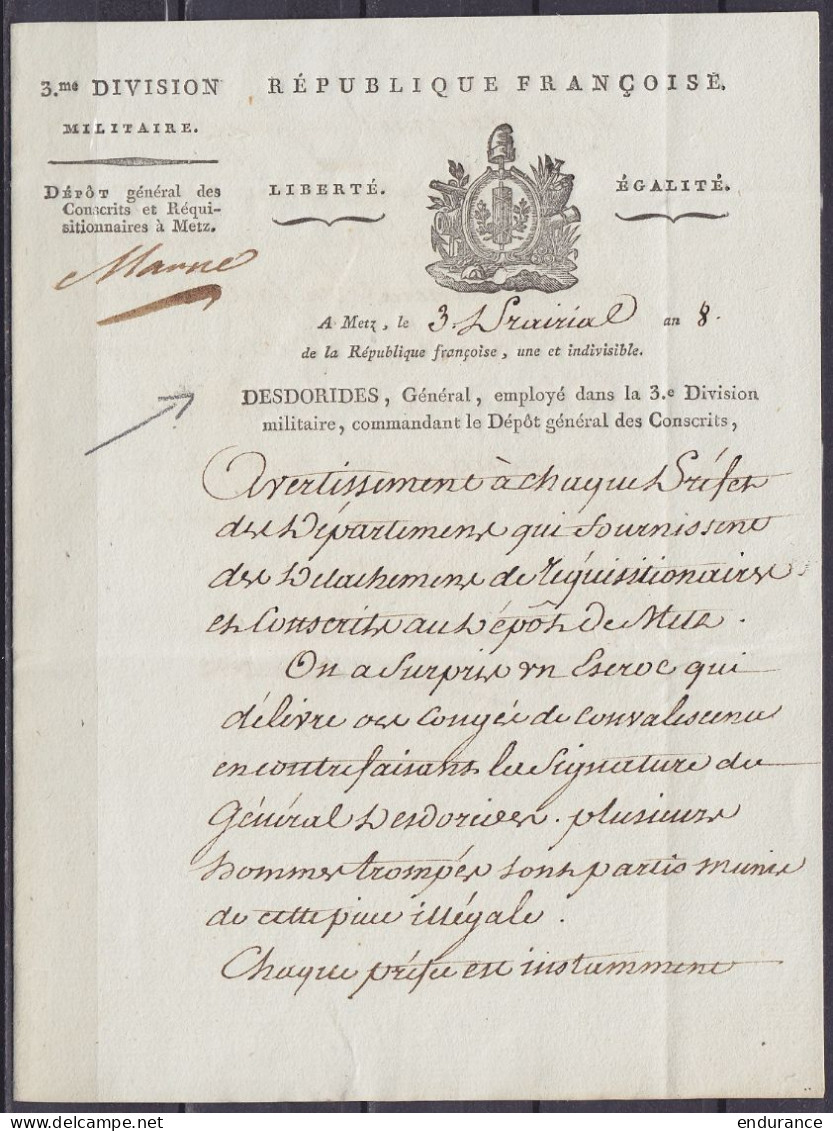 3.me DIVISION
MILITAIRE.
DÉPÔT général des
Conscrits et Réqui-
sitionnaires à Metz.
Marne
RÉPUBLIQUE FRANÇOISE.
LIBERTÉ.
ÉGALITÉ.
A Metz, le 3. Prairial an 8.
de la République françoise, une et indivisible.
DESDORIDES, Général, employé dans la 3.e Division
militaire, commandant le Dépôt général des Conscrits,
Avertissement à chaque Préfet
des Départemens qui fournissent
des Détachemens de réquisitionaires
et Conscrits au Dépôt de Metz.
On a surpris un Escroc qui
délivre des Congés de convalescence
en contrefaisant la signature du
Général Desdorides. plusieurs
hommes trompés sont partis munis
de cette pièce illégale.
Chaque préfet est instamment
delcampe.net
endurance